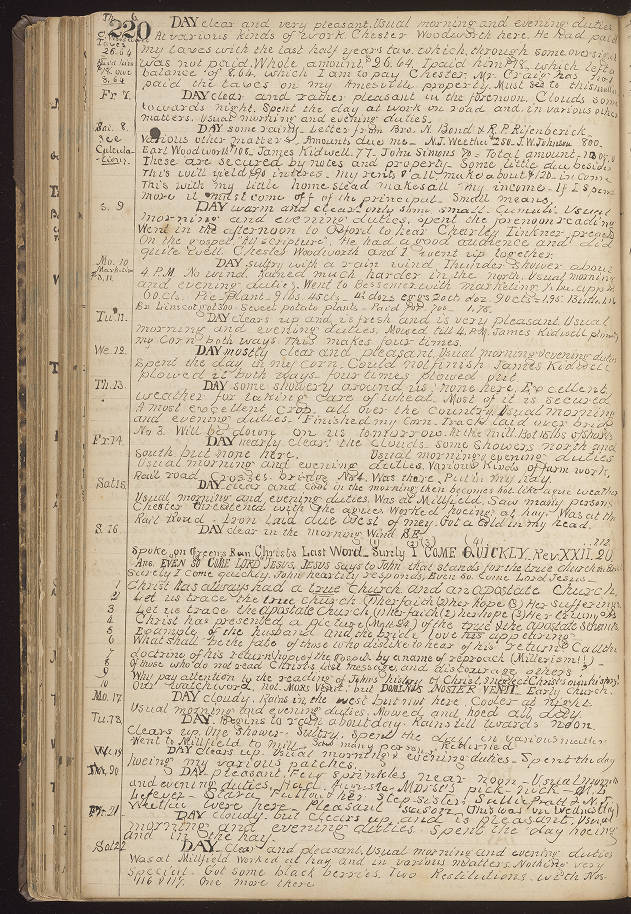 Th. 6
220
DAY clear and very pleasant. Usual morning and evening duties
Taxes
At various kinds of work. Chester Woodworth here. He had paid
26.64
my taxes with the last half years tax. which, through some oversight
was not paid. Whole amount $26.64. I paid him $18. which left a
8.64
balance of 8.64. which I am to pay Chester. Mr. Craig has not
paid the taxes on my Amesville property. Must see to this
Fr 7.
DAY clear and rather pleasant in the forenoon. Clouds some
towards night. Spent the day at work on road and in various other
matters. Usual morning and evening duties.
Sat. 8.
DAY some rainy. Letter from Bro. N. Bond & R. P. Rifenberick.
See
Various other matters. Amounts due me - N.J. Weethee 250. J.W. Johnson 800.
Calcula-
Earl Woodworth 108. James Kidwell. 77. John Simons 70. Total amount,
tions.
These are secured by notes and property. Some little due besides
This will yield $90 interes. my rents & all, make about $120. in come
This with my little homestead makes all my income. If I spend
more it must come off of the principal. Small means,
S. 9.
DAY warm and clear. only some small Cumuli. Usual
morning and evening duties, spent the forenoon reading
Went in the afternoon to Oxford to hear Charley Tinkner preach
On the gospel "All scripture". He had a good audience and did
quite well. Chester Woodworth and I went up together.
Mo. 10
DAY sultry with a rain wind. Thunder shower about
Marketing
4 P.M. No wind. Rained much harder in the north. Usual morning
and evening duties. Went to Bessemer with marketing
60 cts. Pie-plant. 9 lbs. 45 cts.
Sweet potato plants - Paid for 1.75.
Tu. 11.
DAY clears up and is fresh and is very pleasant. Usual
morning and evening duties. Mowed till 4. P.M. James Kidwell plowing
my Corn both ways. This makes four times.
We. 12.
DAY mostly clear and pleasant, Usual morning & evening duties
Spent the day in my corn. Could not finish. James Kidwell
plowed it both ways four times plowed out
Th. 13.
DAY some showery around us, none here. Excellent
weather for taking care of wheat. Most of it is secured
A most excellent crop all over the country. Usual morning
and evening duties. Finished my Corn. Track laid over bridge
No 3. Will be below on us tomorrow.
Fr 14.
DAY nearly clear. the clouds some showers north and
south but none here. Usual morning & evening duties
Usual morning and evening duties. Various kinds of farm work.
Rail road crosses bridge No 4. Was there. Put in my hay.
Sat 15.
DAY clear and cool in the morning then becomes hot like ague weather
Usual morning and evening duties. Was at Millfield. Saw many persons
Chester threatened with the agues. Worked hoeing at hay. Was at the
Rail Road. Iron laid due west of me. Got a cold in my head.
S. 16
DAY clear in the morning Wind S.E.
Spoke on Greens Run. Christs Last Word - Surly I COME QUICKLY. Rev. XXII. 20.
Ans. EVEN SO COME LORD JESUS. Jesus says to John that stands for the true church
Surely I come quickly. John heartily responds, Even so. Come Lord Jesus -
1 Christ has always had a true Church and an apostate Church.
2 Let us trace the true church (1) her faith (2) her hope (3) Her sufferings.
3 Let us trace the apostate Church (1) her faith (2) her hope (3) Her
4 Christ has presented a picture (Mat. 24) of the true & the apostate
5 Example of the husband and the bride love his appearing
6 What shall be the fate of those who dislike to hear of his return? Call the
7 doctrine of his return (hope of the gospel) by a name of reproach (Millerism!!)
8 Of those who do not read Christs last message and discourage others
9 Why pay attention to the reading of John's history of Christ & neglect Christs own history?
Our watchword, not MORS VENIT. but DOMINUS NOSTER VENIT. Early Church.
Mo. 17
DAY cloudy. Rains in the west but not here. Cooler at night
Usual morning and evening duties. Mowed and hoed all day
Tu. 18.
DAY. Begins to rain about day. Rains till towards noon.
Clears up. One shower. Sultry. Spent the day in various matter
Went to Millfield to mill. Saw many persons. Returned
We. 19
DAY Clears up. usual morning & evening duties - Spent the day
hoeing my various patches.
Th. 20
DAY. pleasant. Few sprinkles near noon - Usual morning
and evening duties. Had Augusta Morse's pick-nick -
Lefever her stepsister,
Weethee were here - Pleasant season. (This was on Wednesday)
Fr. 21
DAY cloudy but clears up, and is pleasant, Usual
morning and evening duties. Spent the day hoeing
and in the hay.
Sat 22
DAY Clear and pleasant. Usual morning and evening duties
Was at Millfield Worked at hay and in various matters. Nothing very
special. Got some black berries. Two Restitutions with Nos.
116 & 117. One more there